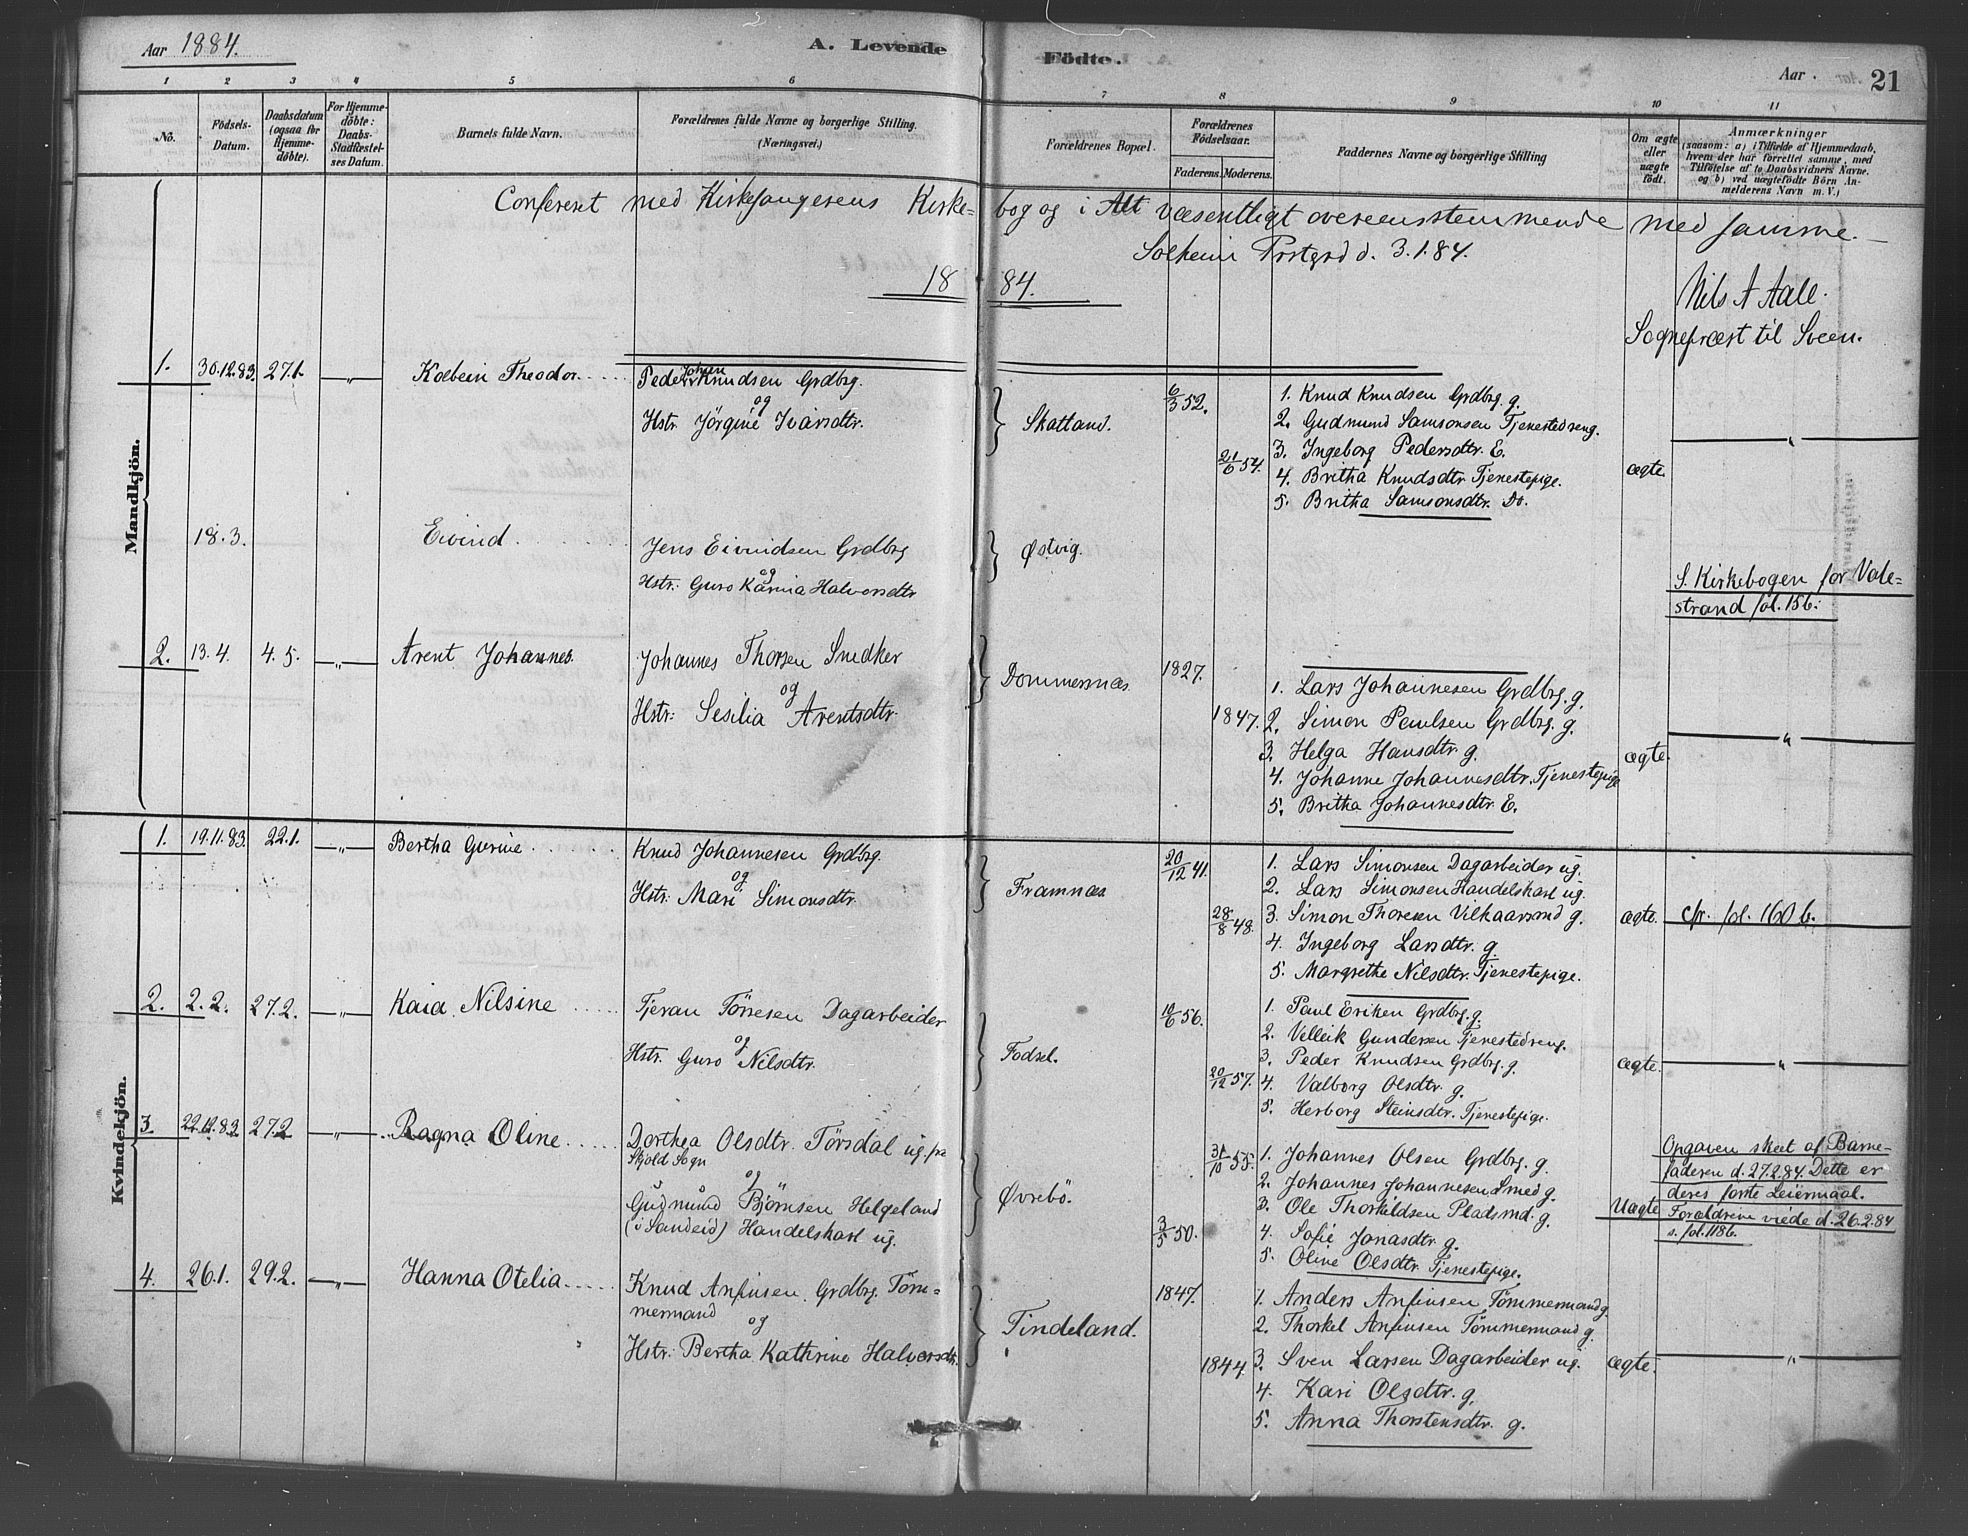 Aar 1884.
A. Levende
Födte.
Aar .
21
1 2 3 4 5 6 7 8 9 10 11
No.
Födsels-
Datum.
Daabsdatum
(ogsaa for
Hjemme-
döbte).
For Hjemme-
döbte:
Daabs-
Stadfæstel-
ses Datum.
Barnets fulde Navn.
Forældrenes fulde Navne og borgerlige Stilling.
(Næringsvei.)
Forældrenes Bopæl.
Forældrenes
Födselsaar.
Faderens. Moderens.
Faddernes Navne og borgerlige Stilling
Om ægte
eller
uægte
födt.
Anmærkninger
(saasom: a) i Tilfælde af Hjemmedaab,
hvem der har forrettet samme, med
Tilföielse af to Daabsvidners Navne.
og b) ved uægtefödte Börn An-
melderens Navn m. V.)
Confereret med Kirkesangerens Kirke-bog og i Alt væsentligt overeensstemmende med samme.
Solheim Prstgrd d. 3.1.84.
1884.
Nils A Aall.
Sognepræst til Sveen.
Mandkjön.
1. 30.12.83. 27.1. —„— Kolbein Theodor.
Peder Johan Knudsen Grdbrg.
og
Hstr. Jörgine Ivarsdtr.
Skatland.
6/3 52.
21/6 54.
1. Knud Knudsen Grdbrg. g.
2. Gudmund Samsonsen Tjenestedreng.
3. Ingeborg Pedersdtr. E.
4. Britha Knudsdtr. Tjenestepige.
5. Britha Samsonsdtr. Do.
ægte
—„—
18.3. Eivind.
Jens Eivindsen Grdbrg
og
Hstr: Guro Karina Halvorsdtr
Østvig.
S. Kirkebogen for Vale-
strand fol. 15b:
2. 13.4. 4.5. —„— Arent Johannes.
Johannes Thorsen Snedker
og
Hstr: Sesilia Arentsdtr.
Dommernæs.
1827.
1847.
1. Lars Johannesen Grdbrg. g.
2. Simon Paulsen Grdbrg. g.
3. Helga Hansdtr. g.
4. Johanne Johannesdtr. Tjenestepige
5. Britha Johannesdtr. E.
ægte.
—„—
Kvindekjön.
1. 19.11.83. 22.1. —„— Bertha Gurine
Knud Johannesen Grdbrg.
og
Hstr: Mari Simonsdtr.
Framnæs.
20/12 41.
28/8 48.
1. Lars Simonsen Dagarbeider ug.
2. Lars Simonsen Handelskarl ug.
3. Simon Thoresen Vilkaarsmd g.
4. Ingeborg Larsdtr. g.
5. Margrethe Nilsdtr. Tjenestepige.
ægte.
cfr. fol. 160 b.
2. 2.2. 27.2. —„— Kaia Nilsine
Tjeran Törresen Dagarbeider
og
Hstr. Guro Nilsdtr.
Fodsel.
10/6 56.
20/12 57.
1. Paul Eriksen Grdbrg. g.
2. Velleik Gundersen Tjenestedreng.
3. Peder Knudsen Grdbrg. g.
4. Valborg Olsdtr. g.
5. Herborg Steinsdtr. Tjenestepige.
ægte.
—„—
3. 22.12.83. 27.2 —„— Ragna Oline
Dorthea Olsdtr. Törsdal ug. fra
Skjold Sogn
og
Gudmund Björnsen Helgeland
(i Sandeid) Handelskarl ug.
Øvrebö.
31/10 55.
3/5 50.
1. Johannes Olsen Grdbrg. g.
2. Johannes Johannesen Smed g.
3. Ole Thorkildsen Pladsmd. g.
4. Sofie Jonasdtr. g.
5. Oline Olsdtr. Tjenestepige.
Uægte
Opgaven skeet af Barne-
faderen d. 27.2.84. Dette er
deres første Leiermaal.
Forældrene viede d. 26.2.84
s. fol. 118b.
4. 26.1. 29.2. —„— Hanna Otelia
Knud Anfinsen Grdbrg. Töm-
mermand
og
Hstr: Bertha Kathrine Halvorsdtr.
Tindeland.
1847.
1844.
1. Anders Anfinsen Tömmermand g.
2. Thorkel Anfinsen Tömmermand g.
3. Sven Larsen Dagarbeider ug.
4. Kari Olsdtr. g.
5. Anna Thorstensdtr. g.
ægte.
—„—